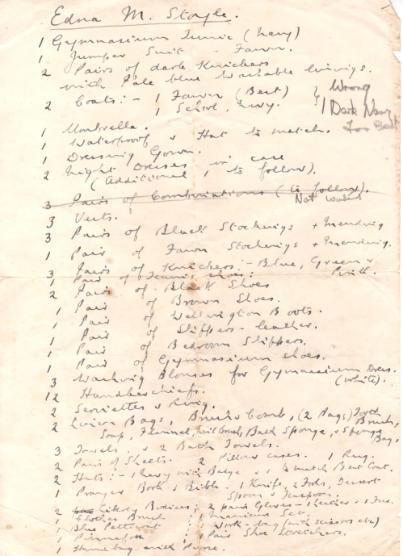 Edna M. Stoyle.
1 Gymnasium Tunic (Navy)
1 Jumper Suit - Fawn.
2 Pairs of dark Knickers
with Pale blue washable linings.
2 Coats:- 1 Fawn (Best) } Wrong
1 School. Navy. 1 Dark Navy
for Best
1 Umbrella.
1 Waterproof & Hat to match.
1 Dressing Gown.
2 Night Dresses in case
(Additional 1 to follow).
3 Pairs of Combinations (to follow).
Not wanted
3 Vests.
3 Pairs of Black Stockings + mending
1 Pair of Fawn Stockings + mending.
3 Pairs of Knickers:- Blue, Green &
1 Pair of Tennis shoes.
2 Pairs of Black Shoes
1 Pair of Brown Shoes.
1 Pair of Wellington Boots.
1 Pair of Slippers - leather.
1 Pair of Bedroom Slippers.
1 Pair of Gymnasium shoes.
3 Washing Blouses for Gymnasium Dress.
(white).
12 Handkerchiefs.
2 Serviettes & Ring.
2 Linen Bags, Brush & Comb, (2 Bags) Tooth Brush,
Soap, Flannel, Nail Brush, Back Sponge, & Sponge Bag.
3 Towels, & 2 Bath Towels.
2 Pair of Sheets. 2 Pillow cases. 1 Rug.
2 Hats:- 1 Navy with Badge & 1 to match Best Coat.
1 Prayer Book, 1 Bible. 1 Knife, 2 Forks, Dessert
Spoon & Teaspoon.
2 Liberty Bodices; 2 pairs Gloves - 1 Leather & 1 Fur.
1 Clothes Brush
1 Blue Petticoat Work-bag (with scissors etc)
1 Pinafore 1 Pair Shoe Trees.
1 Handbag with Purse.